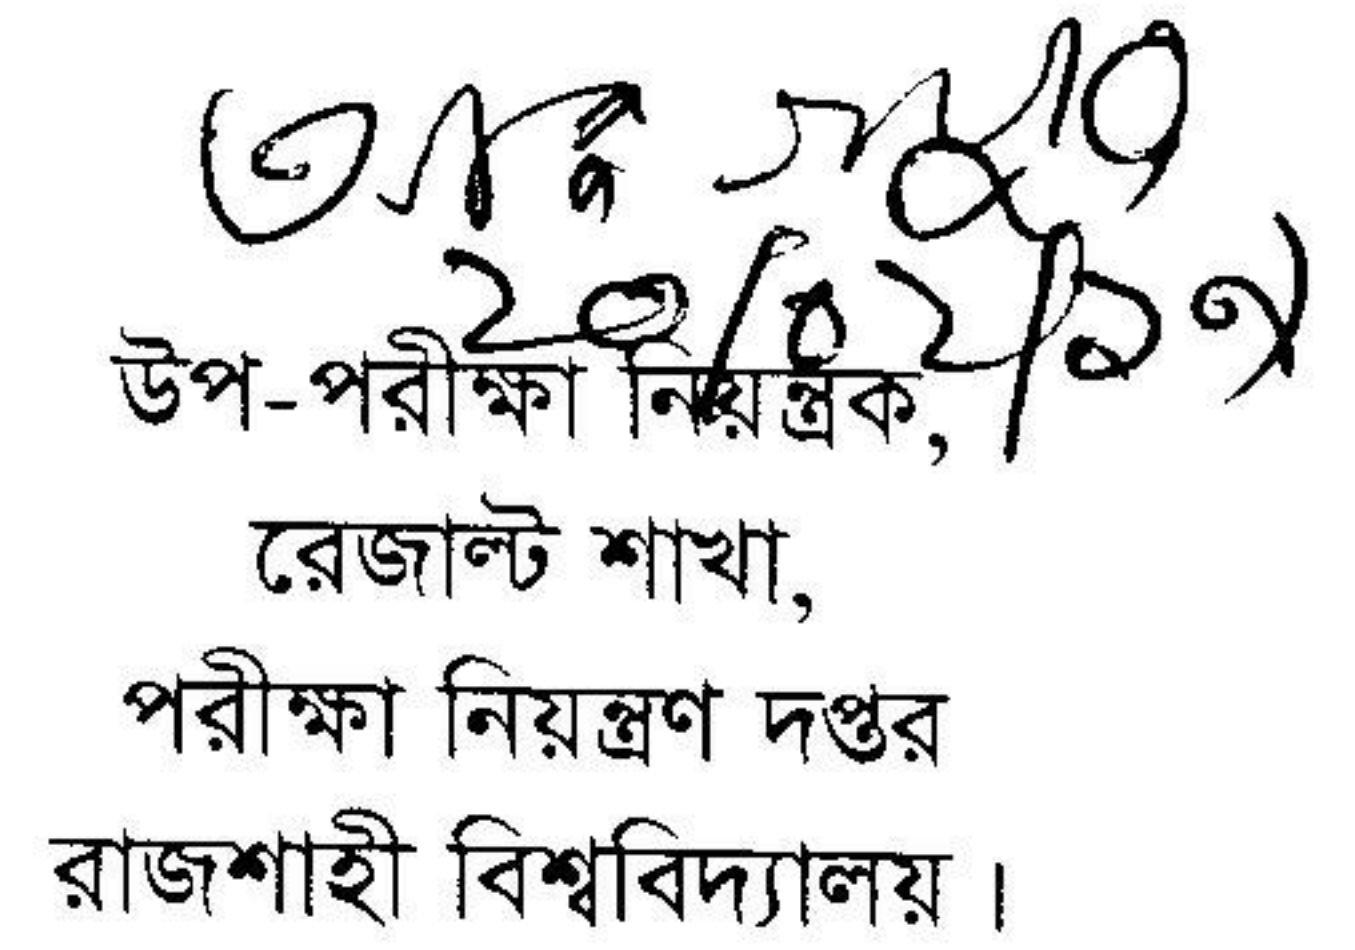 ২০/০২/১৭
উপ-পরীক্ষা নিয়ন্ত্রক,
রেজাল্ট শাখা,
পরীক্ষা নিয়ন্ত্রণ দপ্তর
রাজশাহী বিশ্ববিদ্যালয়।